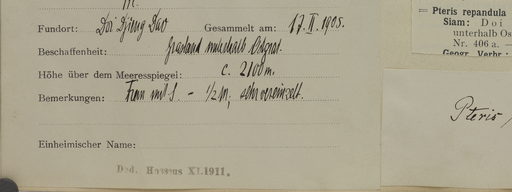 Fundort: Doi Djieng Dao Gesammelt am: 17. II. 1905.
Beschaffenheit: Grasland unterhalb Ostgrat.
Höhe über dem Meeresspiegel: c. 2100 m.
Bemerkungen: Farn mit - 1/2 m, sehr vereinzelt.
Einheimischer Name:
Ded. Hosseus XI.1911.
= Pteris repandula
Siam: Doi
unterhalb Os
Nr. 406 a. —
Geogr. Verbr.:
Pteris